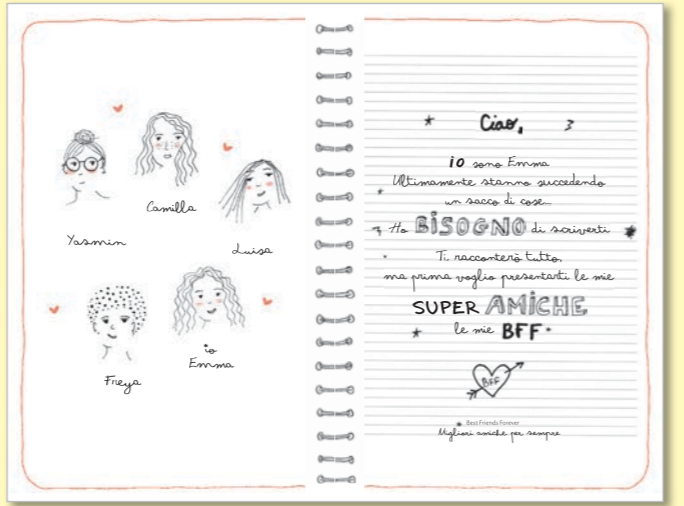 Camilla
Yasmin
Luisa
Freya
io
Emma
Ciao,
io sono Emma
Ultimamente stanno succedendo
un sacco di cose...
Ho BISOGNO di scriverti
Ti racconterò tutto,
ma prima voglio presentarti le mie
SUPER AMICHE
le mie BFF
BFF
Best Friends Forever
Migliori amiche per sempre